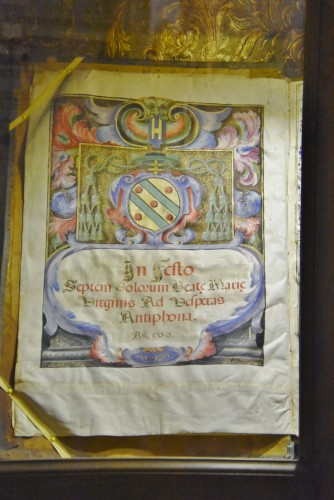 H
In Festo
Septem Dolorum Beatę Marię
Virginis Ad Vesperas
Antiphona.